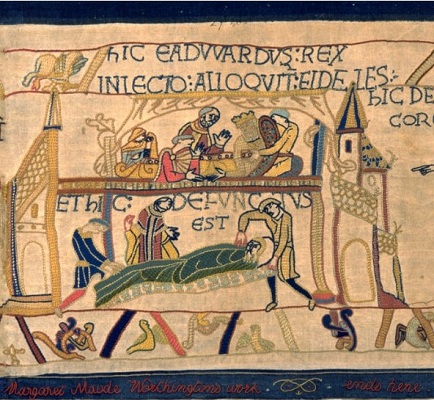 hIC EADVVARDVS:REX
INLECTO:ALLOQVIT:FIDELES:
hIC DE
COR
ET hIC: DEFVNCTVS
EST
Margaret Maude Worthington's work ends here